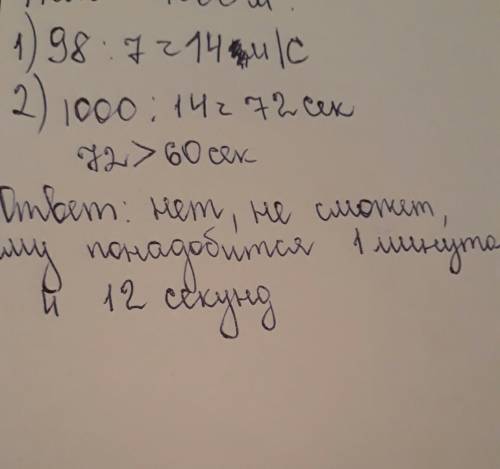 1) 98 : 7 = 14 м/с
2) 1000 : 14 = 72 сек
72 > 60 сек
Ответ: нет, не сможет,
му понадобится 1 минута
и 12 секунд